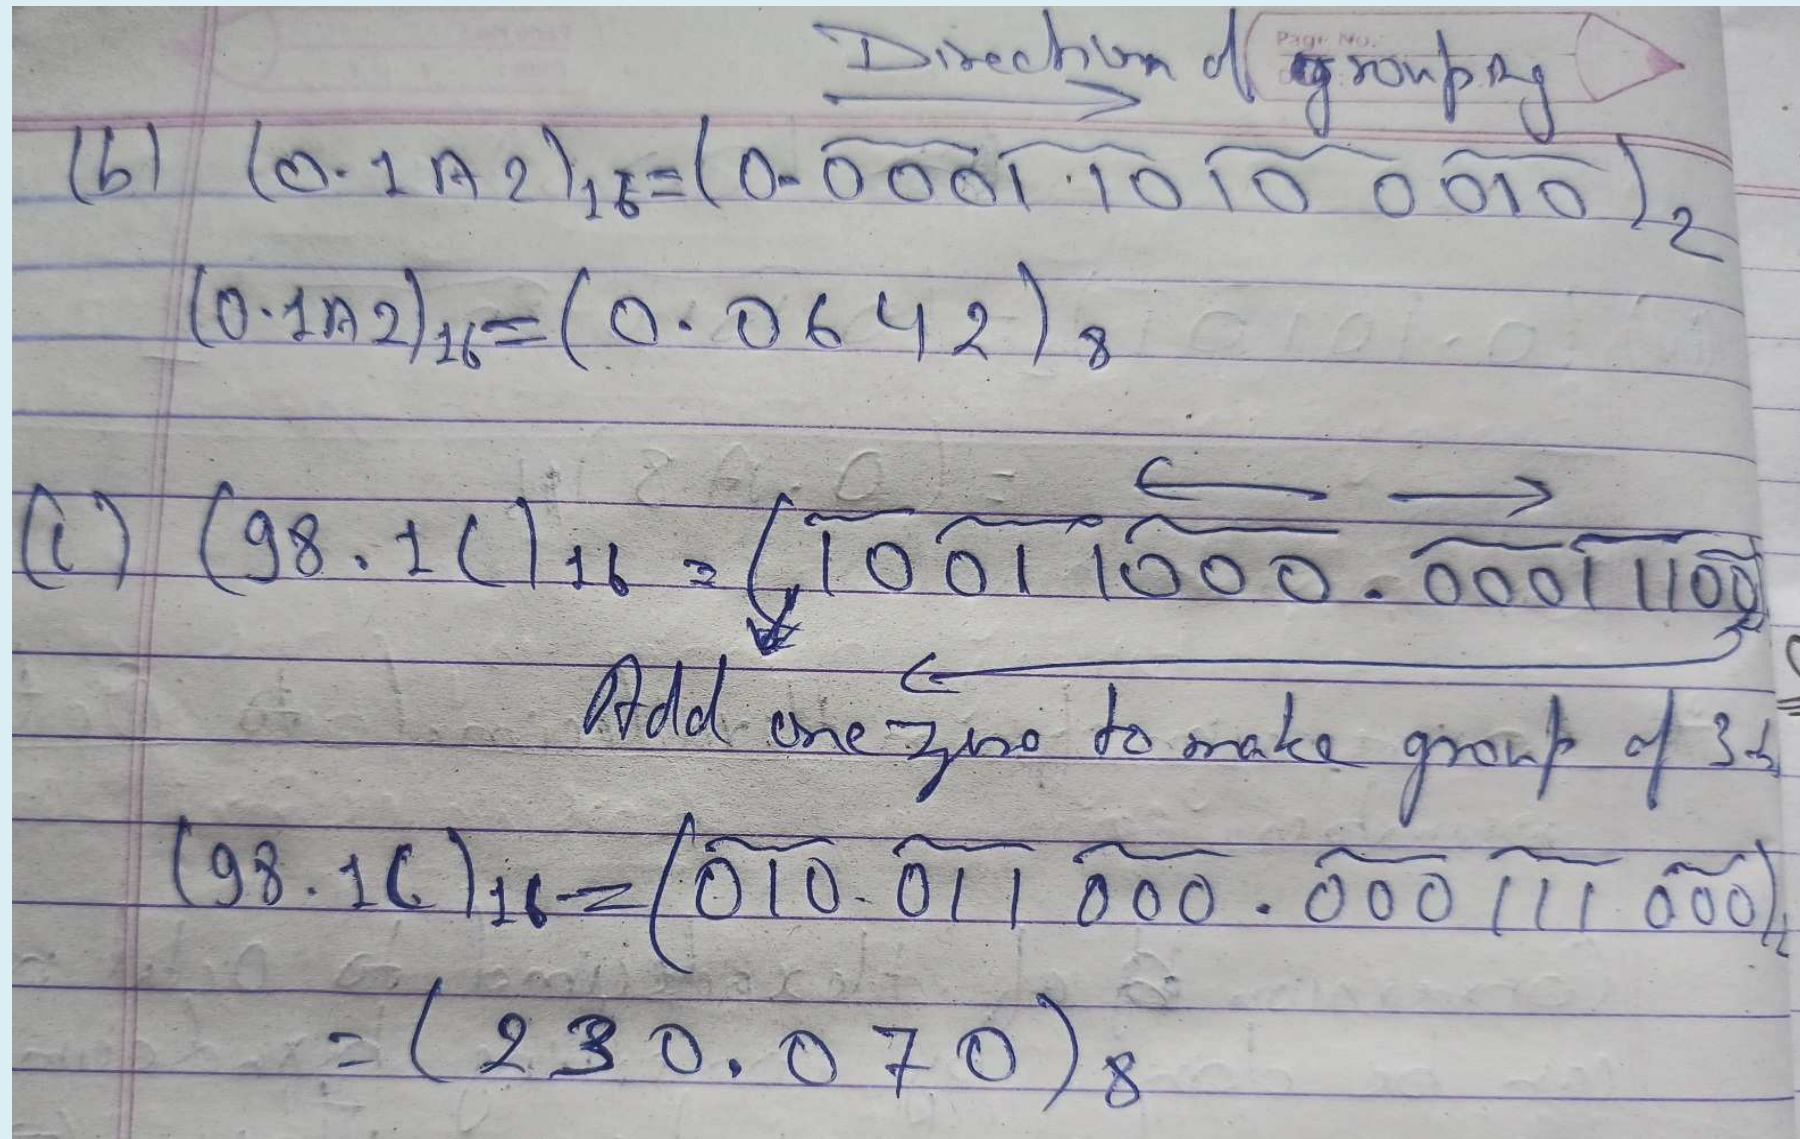 Page No.
Direction of grouping
(b) (0.1A2)16=(0.0001 1010 0010)2
(0.1A2)16=(0.0642)8
(c) (98.1C)16 = (10011000.00011100)
Add one zero to make group of 3
(98.1C)16=(010 011 000.000 111 000)2
=(230.070)8